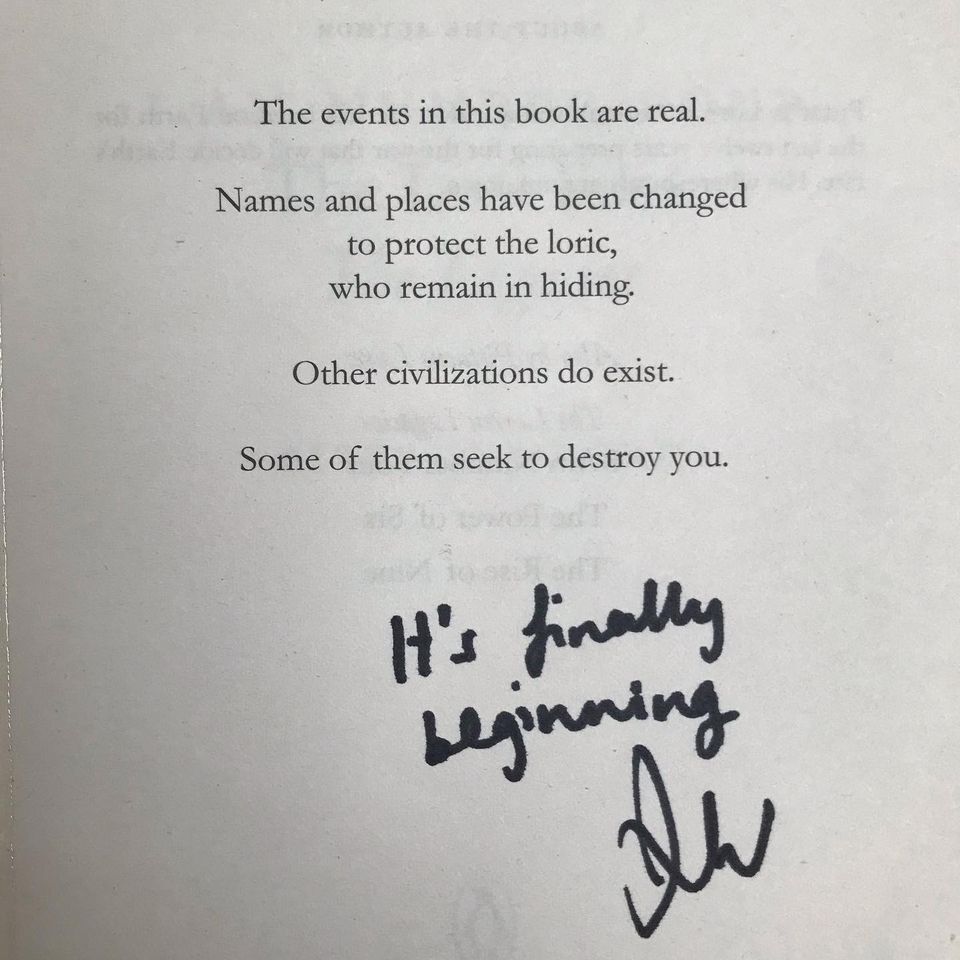 The events in this book are real.
Names and places have been changed
to protect the loric,
who remain in hiding.
Other civilizations do exist.
Some of them seek to destroy you.
The Power of Six
The Rise of Nine
It's finally
beginning